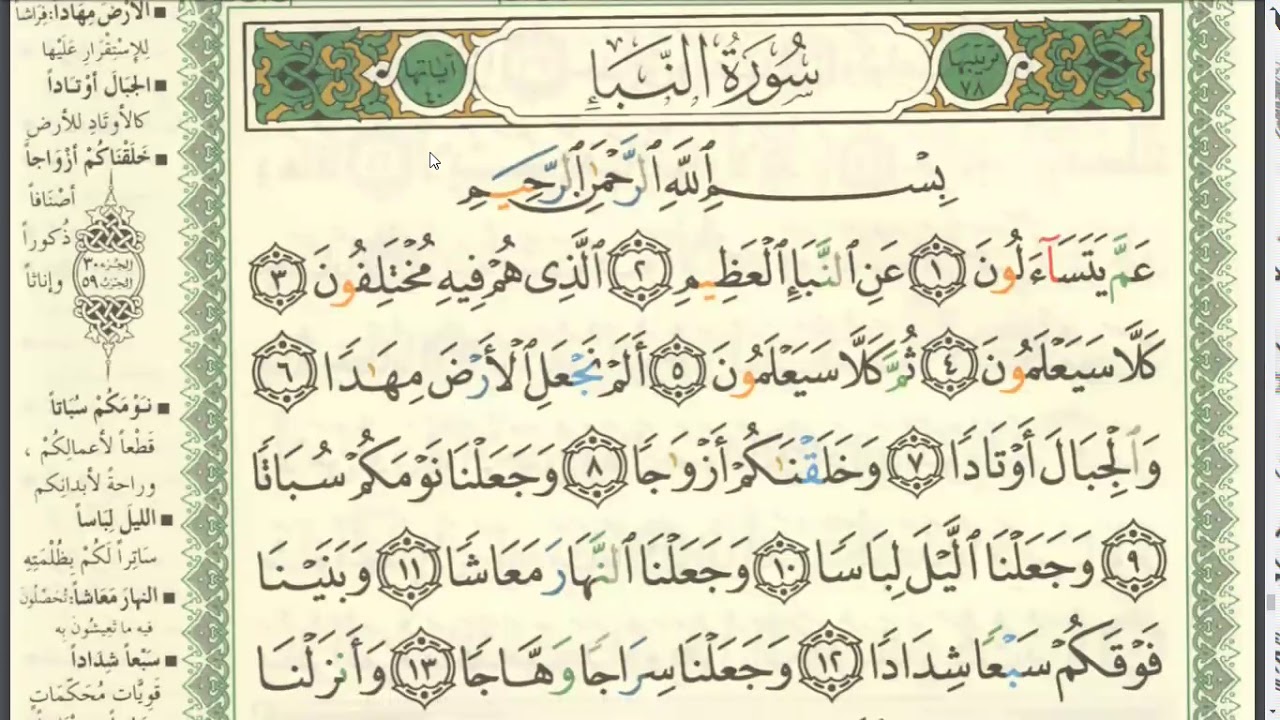 ترتيبها
٧٨
سُورَةُ النَّبَإِ
آياتها
٤٠
بِسْمِ ٱللَّهِ ٱلرَّحْمَٰنِ ٱلرَّحِيمِ
عَمَّ يَتَسَآءَلُونَ ١ عَنِ ٱلنَّبَإِ ٱلْعَظِيمِ ٢ ٱلَّذِى هُمْ فِيهِ مُخْتَلِفُونَ ٣
كَلَّا سَيَعْلَمُونَ ٤ ثُمَّ كَلَّا سَيَعْلَمُونَ ٥ أَلَمْ نَجْعَلِ ٱلْأَرْضَ مِهَٰدًا ٦
وَٱلْجِبَالَ أَوْتَادًا ٧ وَخَلَقْنَٰكُمْ أَزْوَٰجًا ٨ وَجَعَلْنَا نَوْمَكُمْ سُبَاتًا
٩ وَجَعَلْنَا ٱلَّيْلَ لِبَاسًا ١٠ وَجَعَلْنَا ٱلنَّهَارَ مَعَاشًا ١١ وَبَنَيْنَا
فَوْقَكُمْ سَبْعًا شِدَادًا ١٢ وَجَعَلْنَا سِرَاجًا وَهَّاجًا ١٣ وَأَنزَلْنَا
الأَرْضَ مِهَاداً: فِرَاشاً
لِلإِسْتِقْرَارِ عَلَيْهَا
الجِبَالَ أَوْتَاداً
كالأوتَادِ للأرضِ
خَلَقْنَاكُمْ أزْوَاجاً
أصْنَافاً
ذُكوراً
وإناثاً
الجزء ٣٠
الحزب ٥٩
نَوْمَكُمْ سُبَاتاً
قَطْعاً لأعمالِكُمْ ،
وراحةً لأبدانِكم
الليلَ لِبَاساً
سَاتِراً لَكُمْ بِظُلْمَتِهِ
النهارَ مَعَاشاً: تُحَصِّلُونَ
فيه ما تَعِيشُونَ بِه
سَبْعاً شدَاداً
قَوِيَّاتٍ مُحْكَمَاتٍ